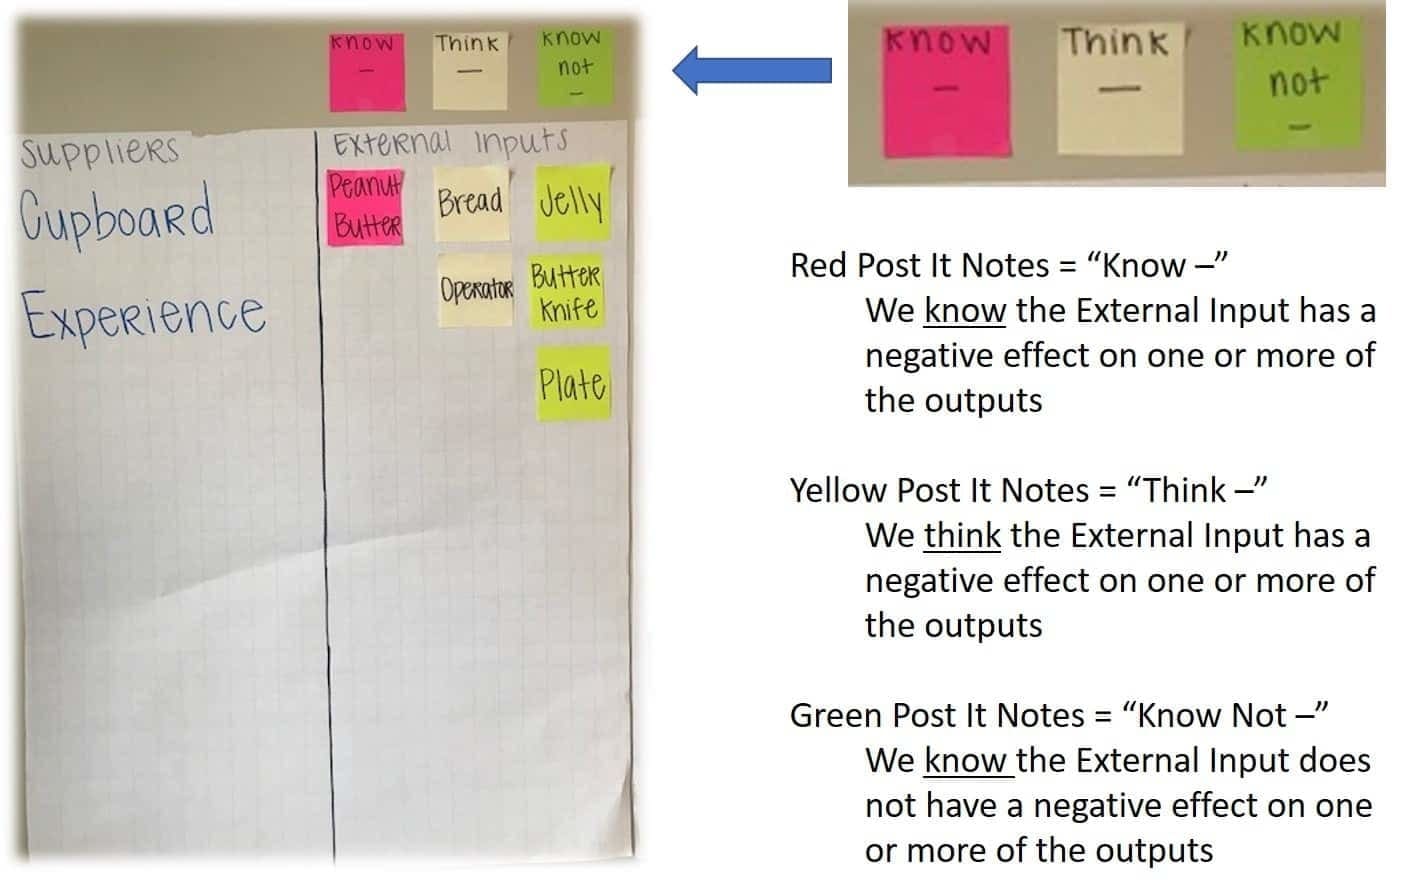 Know
–
Think
–
Know
not
–
Suppliers
External Inputs
Cupboard
Experience
Peanut
Butter
Bread
Jelly
Operator
Butter
Knife
Plate
Know
–
Think
–
Know
not
–
Red Post It Notes = “Know –”
We know the External Input has a
negative effect on one or more of
the outputs
Yellow Post It Notes = “Think –”
We think the External Input has a
negative effect on one or more of
the outputs
Green Post It Notes = “Know Not –”
We know the External Input does
not have a negative effect on one
or more of the outputs